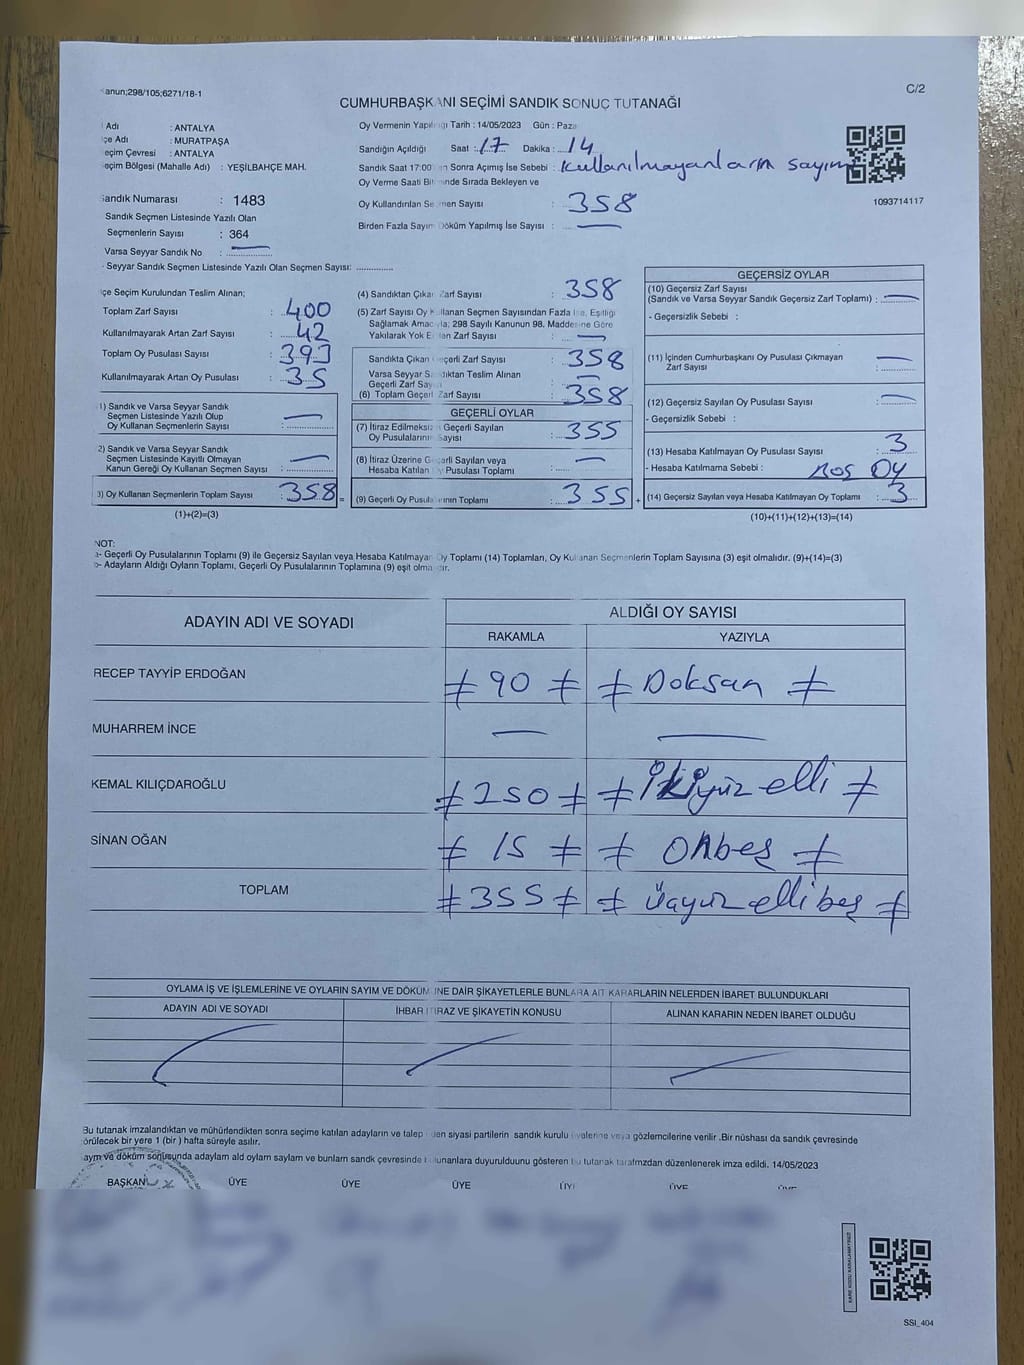 Kanun;298/105;6271/18-1
C/2
CUMHURBAŞKANI SEÇİMİ SANDIK SONUÇ TUTANAĞI
İl Adı : ANTALYA
İlçe Adı : MURATPAŞA
Seçim Çevresi : ANTALYA
Seçim Bölgesi (Mahalle Adı) : YEŞİLBAHÇE MAH.
Sandık Numarası : 1483
Sandık Seçmen Listesinde Yazılı Olan
Seçmenlerin Sayısı : 364
Varsa Seyyar Sandık No :
- Seyyar Sandık Seçmen Listesinde Yazılı Olan Seçmen Sayısı:
Oy Vermenin Yapıldığı Tarih : 14/05/2023 Gün : Pazar
Sandığın Açıldığı Saat : 17 Dakika : 14
Sandık Saat 17:00'den Sonra Açımış İse Sebebi : Kullanılmayanların sayım
Oy Verme Saati Bitiminde Sırada Bekleyen ve
Oy Kullandırılan Seçmen Sayısı : 358
Birden Fazla Sayım Döküm Yapılmış İse Sayısı : —
1093714117
İlçe Seçim Kurulundan Teslim Alınan;
Toplam Zarf Sayısı : 400
Kullanılmayarak Artan Zarf Sayısı : 42
Toplam Oy Pusulası Sayısı : 393
Kullanılmayarak Artan Oy Pusulası : 35
(1) Sandık ve Varsa Seyyar Sandık
Seçmen Listesinde Yazılı Olup
Oy Kullanan Seçmenlerin Sayısı : —
(2) Sandık ve Varsa Seyyar Sandık
Seçmen Listesinde Kayıtlı Olmayan
Kanun Gereği Oy Kullanan Seçmen Sayısı : —
(3) Oy Kullanan Seçmenlerin Toplam Sayısı : 358 =
(1)+(2)=(3)
(4) Sandıktan Çıkan Zarf Sayısı : 358
(5) Zarf Sayısı Oy Kullanan Seçmen Sayısından Fazla İse, Eşitliği
Sağlamak Amacıyla; 298 Sayılı Kanunun 98. Maddesine Göre
Yakılarak Yok Edilen Zarf Sayısı : —
Sandıkta Çıkan Geçerli Zarf Sayısı : 358
Varsa Seyyar Sandıktan Teslim Alınan
Geçerli Zarf Sayısı : —
(6) Toplam Geçerli Zarf Sayısı : 358
GEÇERLİ OYLAR
(7) İtiraz Edilmeksizin Geçerli Sayılan
Oy Pusulalarının Sayısı : 355
(8) İtiraz Üzerine Geçerli Sayılan veya
Hesaba Katılan Oy Pusulası Toplamı : —
(9) Geçerli Oy Pusulalarının Toplamı : 355 +
GEÇERSİZ OYLAR
(10) Geçersiz Zarf Sayısı
(Sandık ve Varsa Seyyar Sandık Geçersiz Zarf Toplamı) : —
- Geçersizlik Sebebi :
(11) İçinden Cumhurbaşkanı Oy Pusulası Çıkmayan
Zarf Sayısı : —
(12) Geçersiz Sayılan Oy Pusulası Sayısı : —
- Geçersizlik Sebebi :
(13) Hesaba Katılmayan Oy Pusulası Sayısı : 3
- Hesaba Katılmama Sebebi : BOŞ OY
(14) Geçersiz Sayılan veya Hesaba Katılmayan Oy Toplamı : 3
(10)+(11)+(12)+(13)=(14)
NOT:
a- Geçerli Oy Pusulalarının Toplamı (9) ile Geçersiz Sayılan veya Hesaba Katılmayan Oy Toplamı (14) Toplamları, Oy Kullanan Seçmenlerin Toplam Sayısına (3) eşit olmalıdır. (9)+(14)=(3)
b- Adayların Aldığı Oyların Toplamı, Geçerli Oy Pusulalarının Toplamına (9) eşit olmalıdır.
ADAYIN ADI VE SOYADI
ALDIĞI OY SAYISI
RAKAMLA YAZIYLA
RECEP TAYYİP ERDOĞAN ≠ 90 ≠ ≠ Doksan ≠
MUHARREM İNCE — —
KEMAL KILIÇDAROĞLU ≠ 250 ≠ ≠ İkiyüz elli ≠
SİNAN OĞAN ≠ 15 ≠ ≠ Onbeş ≠
TOPLAM ≠ 355 ≠ ≠ Üçyüz elli beş ≠
OYLAMA İŞ VE İŞLEMLERİNE VE OYLARIN SAYIM VE DÖKÜMÜNE DAİR ŞİKAYETLERLE BUNLARA AİT KARARLARIN NELERDEN İBARET BULUNDUKLARI
ADAYIN ADI VE SOYADI İHBAR İTİRAZ VE ŞİKAYETİN KONUSU ALINAN KARARIN NEDEN İBARET OLDUĞU
Bu tutanak imzalandıktan ve mühürlendikten sonra seçime katılan adayların ve talep eden siyasi partilerin sandık kurulu üyelerine veya gözlemcilerine verilir .Bir nüshası da sandık çevresinde
görülecek bir yere 1 (bir ) hafta süreyle asılır.
Sayım ve döküm sonusunda adaylam ald oylam saylam ve bunlam sandk çevresinde bulunanlara duyurulduunu gösteren bu tutanak tarafmzdan düzenlenerek imza edildi. 14/05/2023
BAŞKAN ÜYE ÜYE ÜYE ÜYE ÜYE ÜYE
KARE KODU KARALAMAYINIZ!
SSI_404